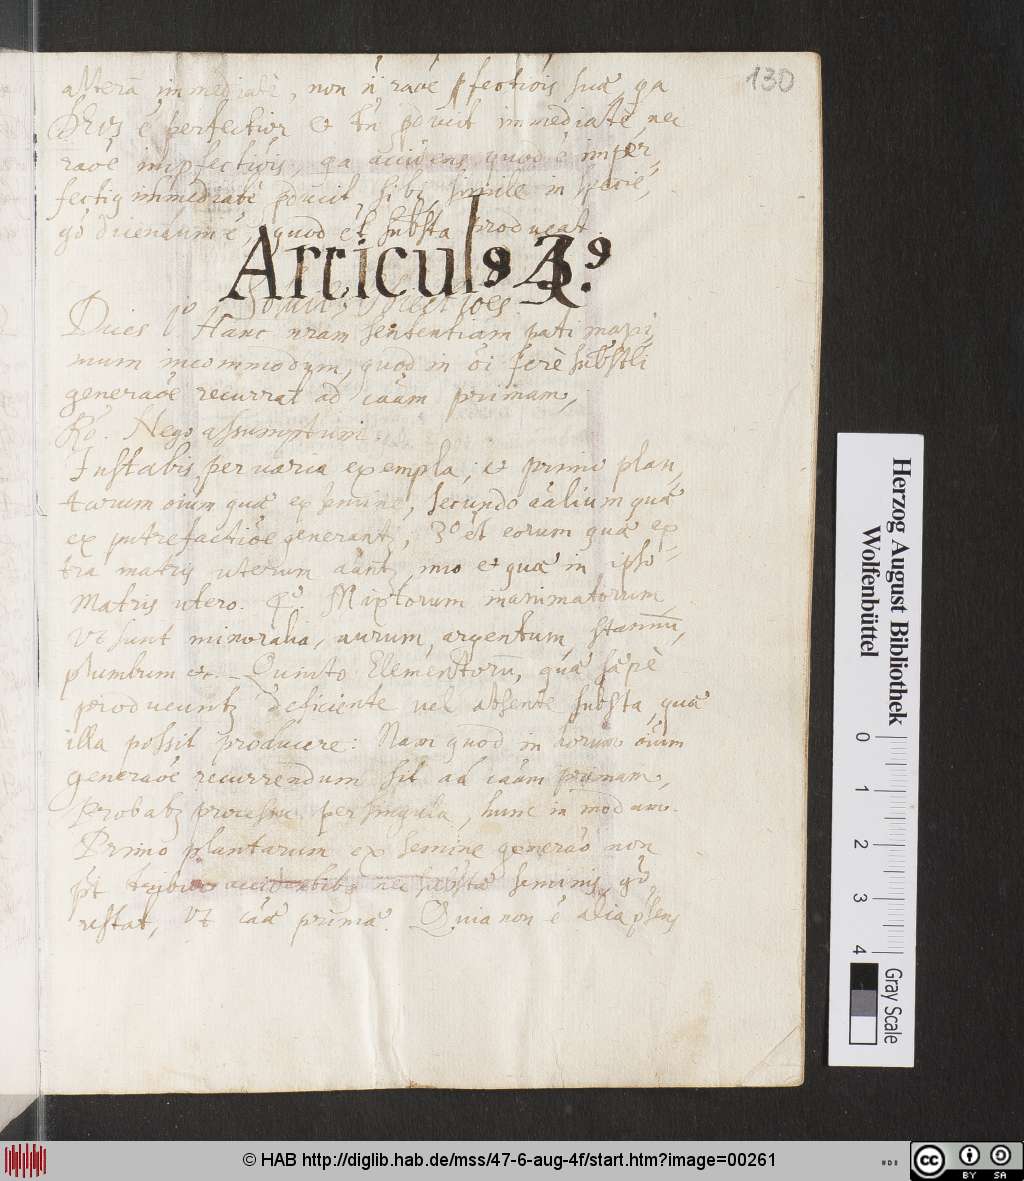 130
alterā immediatè, non n̄ raōe pfectiōis suæ, qa
ē perfectior et tn̄ immediatè, nec
raōē impfectiōis, qa accidens quod ē imper-
fectiq immediatè sibi simile in specie,
gō dicendum ē, quod et substa producat.
Articulꝰ 4ꝰ.
Soluit obiectiōes.
Dices 1º Hanc nram sententiam pati maxi-
mum incommodum, quod in ōi ferè substli
generaōe recurrat ad cāam primam,
Rō. Nego assumptum.
Instabis per varia exempla, et primo plan-
tarum oium quæ ex semine, secundo aālium quæ
ex putrefactiōe generantꝫ, 3º et eorum quæ ex-
tra matris uterum imo et quæ in ipso
Matris utero. 4º. Mixtorum inanimatorum
Vt sunt mineralia, aurum, argentum, stannū,
plumbum etc. Quinto Elementorū, quæ sæpè
producuntꝫ deficiente vel absente substa, quæ
illa possit producere: Nam quod in horum ōium
generaōē recurrendum sit ad cāam primam,
Probatꝫ per singula, hunc in modum.
Primo plantarum ex semine generaō non
pt tribui accidentibꝫ nec substæ seminis, gō
restat, vt cāæ primæ. Quia non ē alia psens
Herzog August Bibliothek
Wolfenbüttel
0 1 2 3 4
Gray Scale
© HAB http://diglib.hab.de/mss/47-6-aug-4f/start.htm?image=00261
cc BY SA